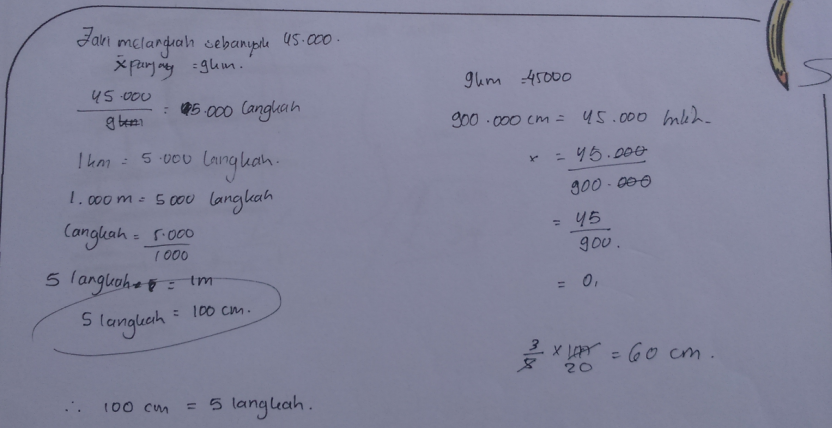 Jawi melangkah sebanyak 45.000.
x̄ panjang = 9km.
45.000 / 9km = 5.000 langkah
1km = 5.000 langkah.
1.000m = 5000 langkah
langkah = 5.000 / 1000
5 langkah = 1m
5 langkah = 100 cm.
∴ 100 cm = 5 langkah.
9km = 45000
900.000 cm = 45.000
x = 45.000 / 900.000
= 45 / 900.
= 0,
3/5 × 100 20 = 60 cm.
S